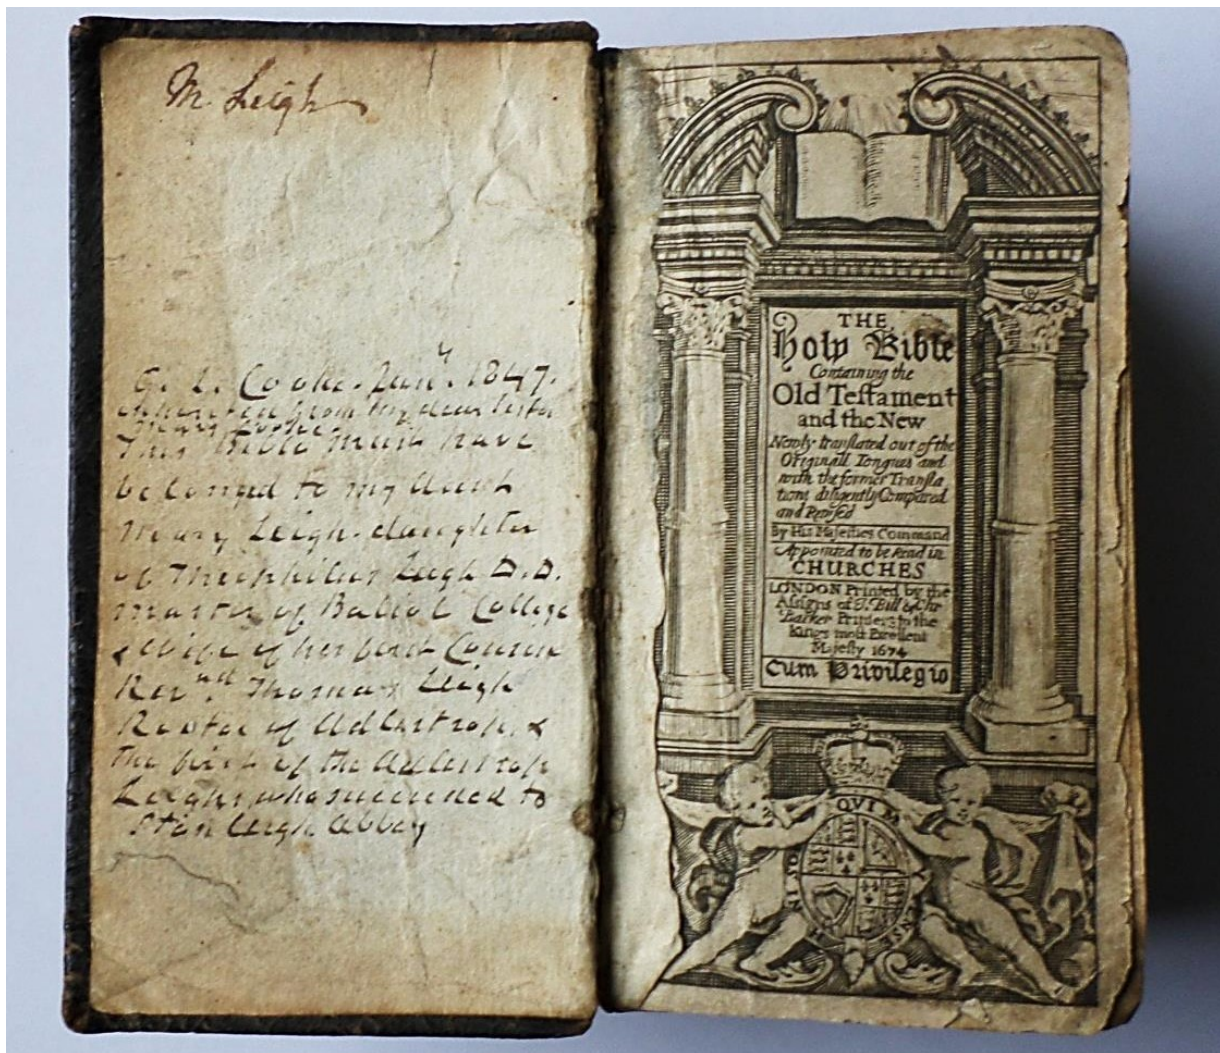 M. Leigh
G. L. Cooke. Jany. 1847.
inherited from my dear sister
Mary Cooke
This Bible must have
belonged to my Aunt
Mary Leigh. daughter
of Theophilus Leigh D.D.
Master of Baliol College
& wife of her first Cousin
Revnd Thomas Leigh
Rector of Adlestrop. &
the first of the Adlestrop
Leighs who succeeded to
Stonleigh Abbey
THE
Holy Bible
Containing the
Old Testament
and the New
Newly translated out of the
Originall Tongues and
with the former Transla
tions diligently Compared
and Revised
By His Majesties Command
Appointed to be Read in
CHURCHES
LONDON Printed by the
Assigns of J. Bill & Chr
Barker Printers to the
Kings most Excellent
Majesty 1674
Cum Privilegio
HONI SOIT QVI MAL Y PENSE